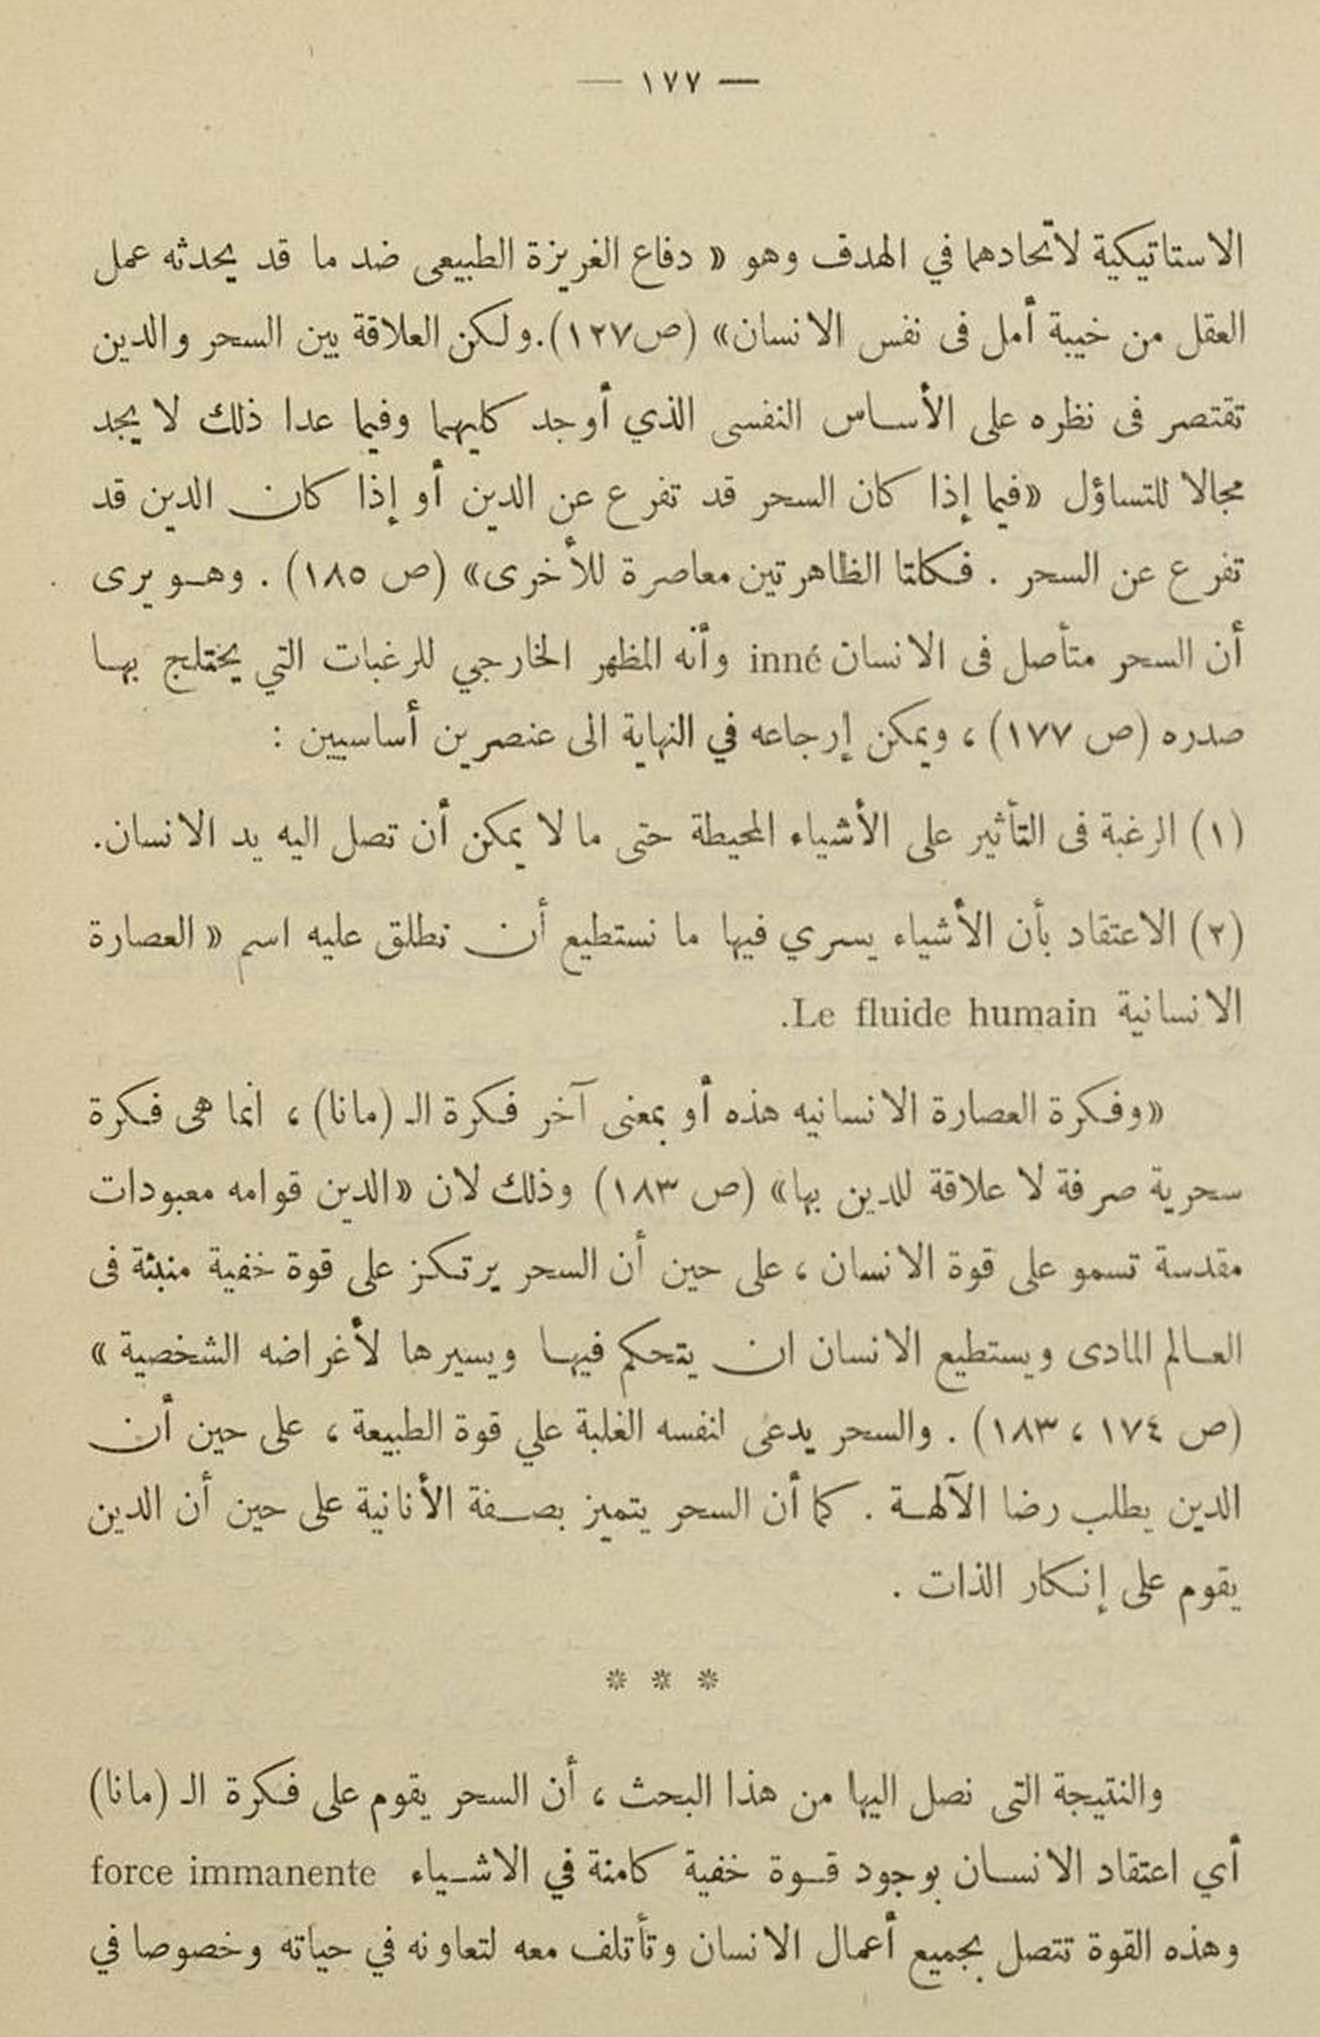 — ١٧٧ —
الاستاتيكية لاتحادهما في الهدف وهو « دفاع الغريزة الطبيعى ضد ما قد يحدثه عمل
العقل من خيبة أمل فى نفس الانسان» (ص١٢٧). ولكن العلاقة بين السحر والدين
تقتصر فى نظره على الأساس النفسى الذي أوجد كليهما وفيما عدا ذلك لا يجد
مجالا للتساؤل «فيما إذا كان السحر قد تفرع عن الدين أو إذا كان الدين قد
تفرع عن السحر . فكلتا الظاهرتين معاصرة للأخرى» (ص ١٨٥) . وهو يرى
أن السحر متأصل فى الانسان inné وأنه المظهر الخارجي للرغبات التي يختلج بها
صدره (ص ١٧٧) ، ويمكن إرجاعه في النهاية الى عنصرين أساسيين :
(١) الرغبة فى التأثير على الأشياء المحيطة حتى ما لا يمكن أن تصل اليه يد الانسان.
(٢) الاعتقاد بأن الأشياء يسري فيها ما نستطيع أن نطلق عليه اسم « العصارة
الانسانية Le fluide humain.
«وفكرة العصارة الانسانيه هذه أو بمعنى آخر فكرة الـ (مانا) ، انما هى فكرة
سحرية صرفة لا علاقة للدين بها» (ص ١٨٣) وذلك لان «الدين قوامه معبودات
مقدسة تسمو على قوة الانسان ، على حين أن السحر يرتكز على قوة خفية منبثة فى
العالم المادى ويستطيع الانسان ان يتحكم فيها ويسيرها لأغراضه الشخصية »
(ص ١٧٤ ، ١٨٣) . والسحر يدعى لنفسه الغلبة علي قوة الطبيعة ، على حين أن
الدين يطلب رضا الآلهة . كما أن السحر يتميز بصفة الأنانية على حين أن الدين
يقوم على إنكار الذات .
* * *
والنتيجة التى نصل اليها من هذا البحث ، أن السحر يقوم على فكرة الـ (مانا)
أي اعتقاد الانسان بوجود قوة خفية كامنة في الاشياء force immanente
وهذه القوة تتصل بجميع أعمال الانسان وتأتلف معه لتعاونه في حياته وخصوصا في